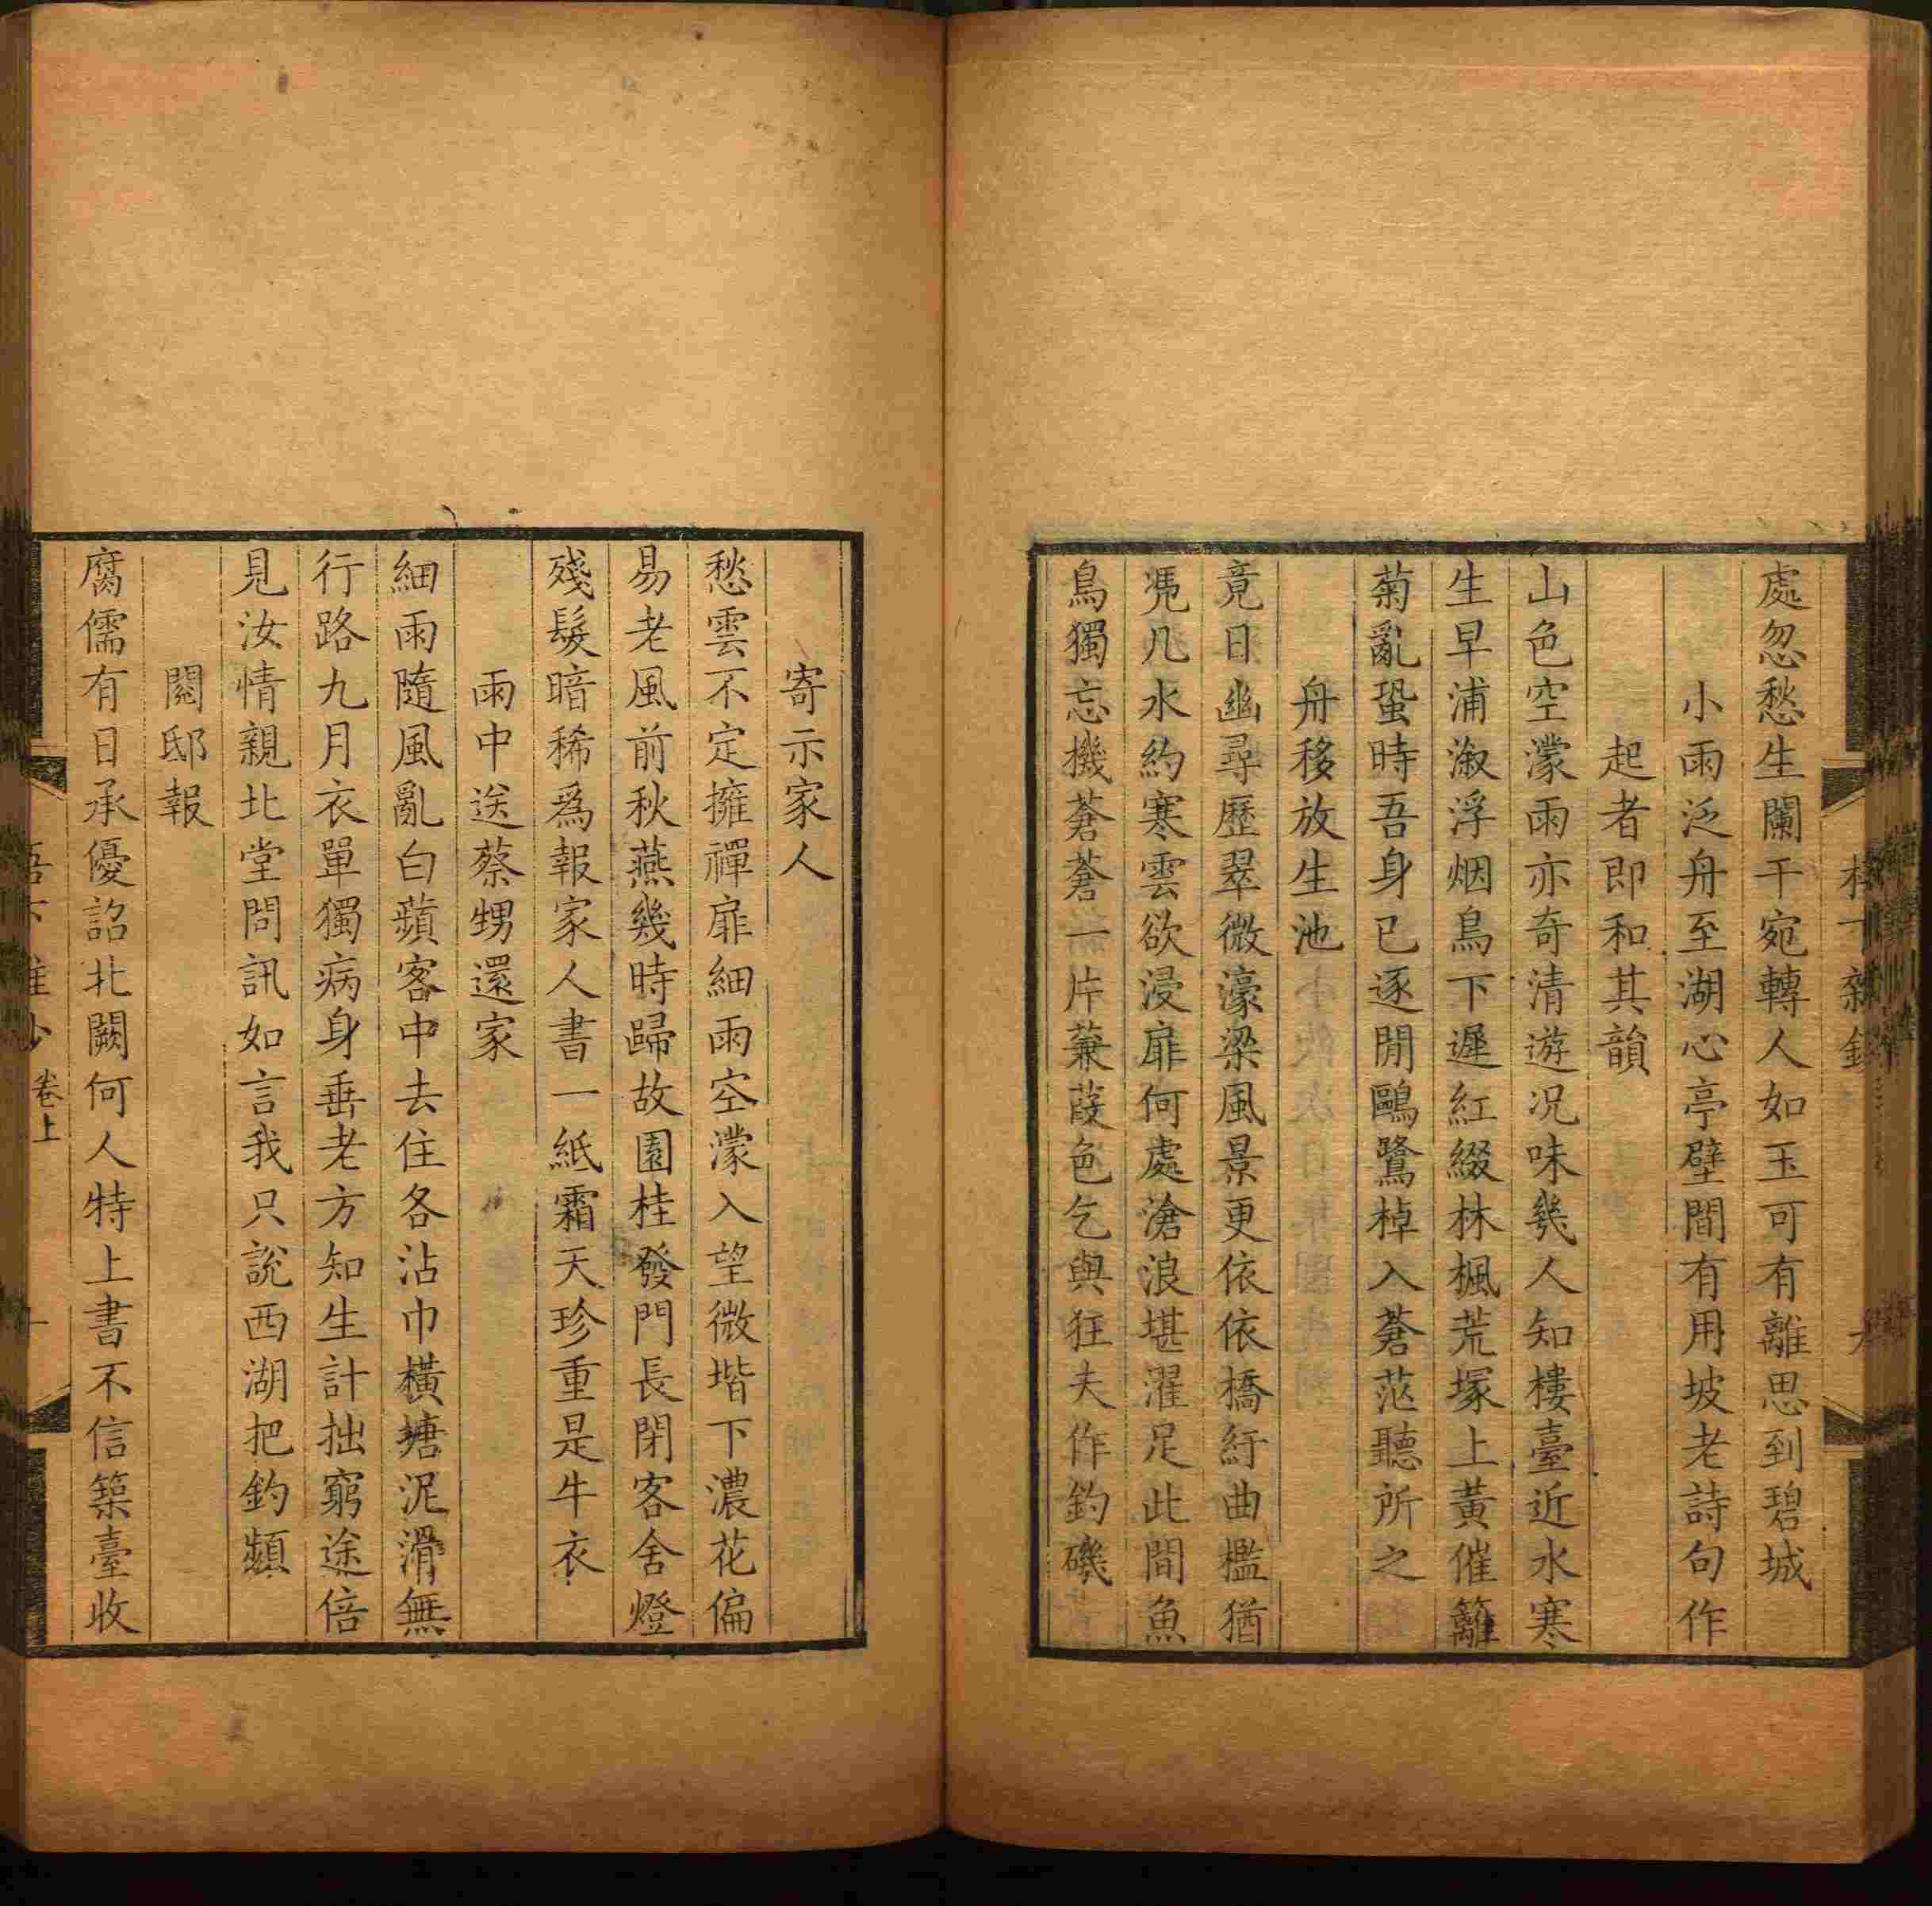 處忽愁生闌干宛轉人如玉可有離思到碧城
小雨泛舟至湖心亭壁間有用坡老詩句作
起者即和其韻
山色空濛雨亦奇清遊况味幾人知樓臺近水寒
生早浦溆浮烟鳥下遲紅綴林楓荒塚上黃催籬
菊亂蛩時吾身已逐閒鷗鷺棹入蒼茫聽所之
舟移放生池
竟日幽尋歷翠微濠梁風景更依依橋紆曲檻猶
凭几水約寒雲欲浸扉何處滄浪堪濯足此間魚
鳥獨忘機蒼蒼一片蒹葭色乞與狂夫作釣磯
寄示家人
愁雲不定擁禪扉細雨空濛入望微堦下濃花偏
易老風前秋燕幾時歸故園桂發門長閉客舍燈
殘髮暗稀爲報家人書一紙霜天珍重是牛衣
雨中送蔡甥還家
細雨隨風亂白蘋客中去住各沾巾橫塘泥滑無
行路九月衣單獨病身垂老方知生計拙窮途倍
見汝情親北堂問訊如言我只說西湖把釣頻
閱邸報
腐儒有日承優詔北闕何人特上書不信築臺收
卷上